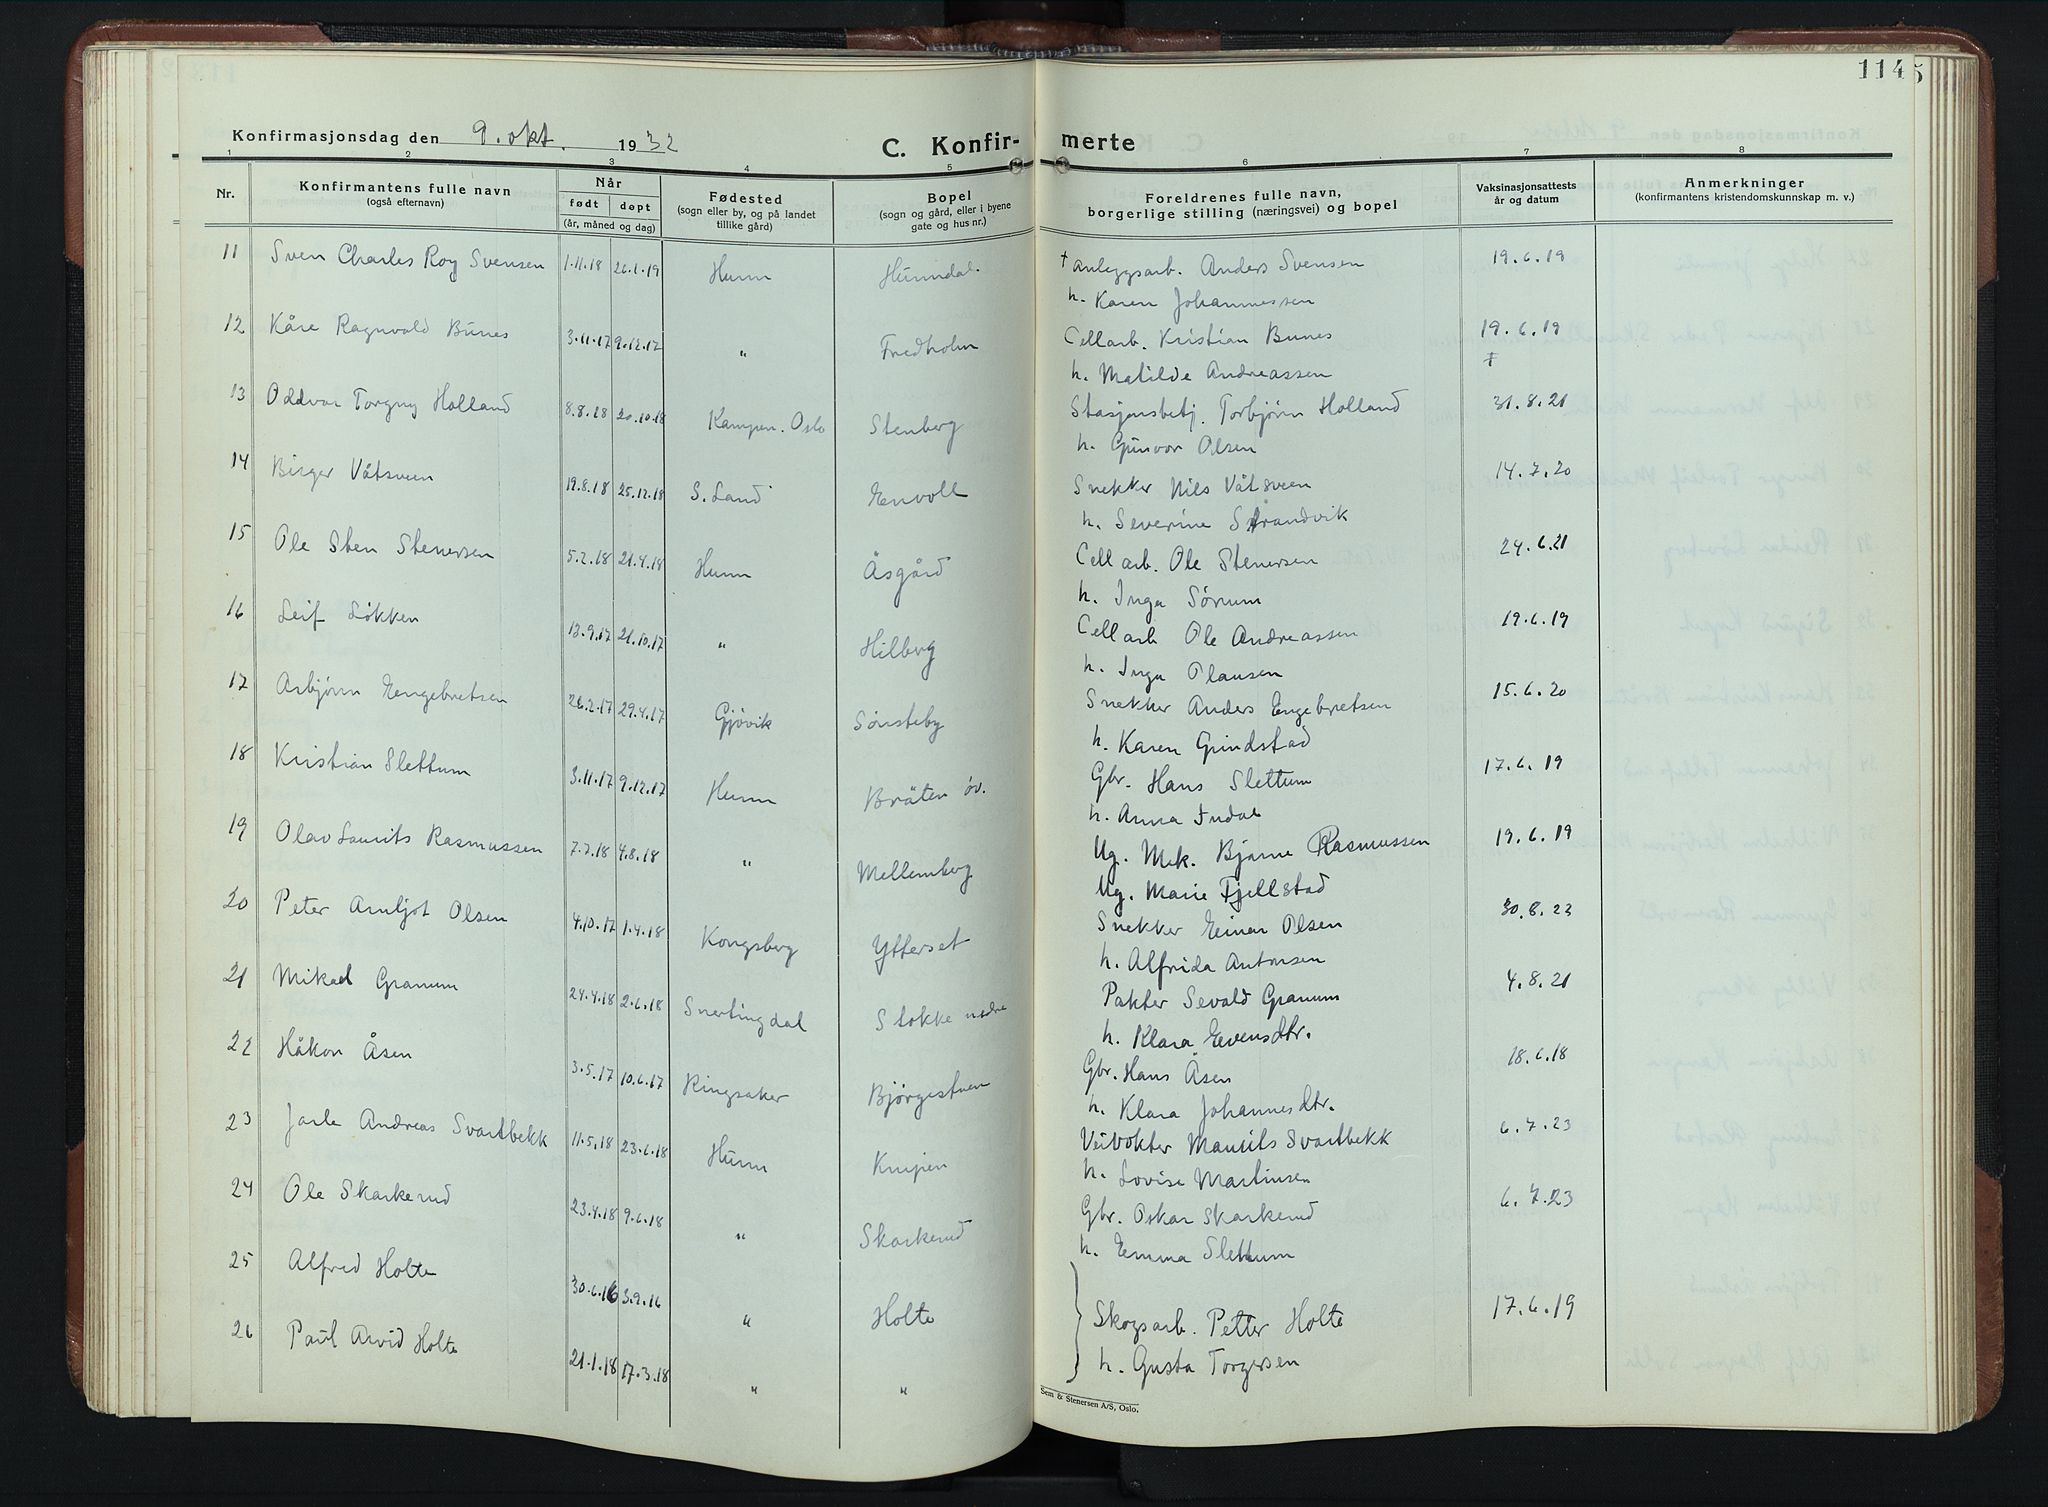 1145
Konfirmasjonsdag den 9. okt. 1932
C. Konfir-merte
1 2 3 4 5 6 7 8
Nr. Konfirmantens fulle navn (også efternavn) Når født døpt (år, måned og dag) Fødested (sogn eller by, og på landet tillike gård) Bopel (sogn og gård, eller i byene gate og hus nr.) Foreldrenes fulle navn, borgerlige stilling (næringsvei) og bopel Vaksinasjonsattests år og datum Anmerkninger (konfirmantens kristendomskunnskap m. v.)
11 Sven Charles Roy Svensen 1.11.18 26.1.19 Hunn Hunndal. † anleggsarb. Anders Svensen 19.6.19
h. Karen Johannessen
12 Kåre Ragnvald Bunes 3.11.17 9.12.17 " Fredholm Cellarb. Kristian Bunes 19.6.19
h. Matilde Andreassen
13 Oddvar Torgny Holland 8.8.18 20.10.18 Kampen. Oslo Stenberg Stasjonsbetj. Torbjørn Holland 31.8.21
h. Gunvor Olsen
14 Birger Våtsveen 19.8.18 25.12.18 S. Land Envoll Snekker Nils Våtsveen 14.7.20
h. Severine Strandvik
15 Ole Sten Stenersen 5.2.18 21.4.18 Hunn Åsgård Cellarb. Ole Stenersen 24.6.21
h. Inga Sørum
16 Leif Løkken 13.9.17 21.10.17 " Hilberg Cellarb Ole Andreassen 19.6.19
h. Inga Olausen
17 Asbjørn Engebretsen 26.2.17 29.4.17 Gjøvik Sønsteby Snekker Anders Engebretsen 15.6.20
h. Karen Grindstad
18 Kristian Slettum 3.11.17 9.12.17 Hunn Bråten øv. Gbr. Hans Slettum 17.6.19
h. Anna Indal
19 Olav Laurits Rasmussen 7.7.18 4.8.18 " Mellemberg Ug. Mek. Bjarne Rasmussen 19.6.19
Ug. Marie Fjellstad
20 Peter Arnljot Olsen 4.10.17 1.4.18 Kongsberg Ytterset Snekker Einar Olsen 30.8.23
h. Alfrida Antonsen
21 Mikael Granum 24.4.18 2.6.18 Snertingdal Stokke nedre Pakter Sevald Granum 4.8.21
h. Klara Evensdtr.
22 Håkon Åsen 3.5.17 10.6.17 Ringsaker Bjørgestuen Gbr. Hans Åsen 18.6.18
h. Klara Johannesdtr.
23 Jarle Andreas Svartbekk 11.5.18 23.6.18 Hunn Knipen Veivokter Maurits Svartbekk 6.7.23
h. Lovise Martinsen
24 Ole Skarkerud 23.4.18 9.6.18 " Skarkerud Gbr. Oskar Skarkerud 6.7.23
h. Emma Slettum
25 Alfred Holte 30.6.16 3.9.16 " Holte Skogsarb. Petter Holte 17.6.19
26 Paul Arvid Holte 21.1.18 17.3.18 " " h. Gusta Torgersen
Sem & Stenersen A/S, Oslo.